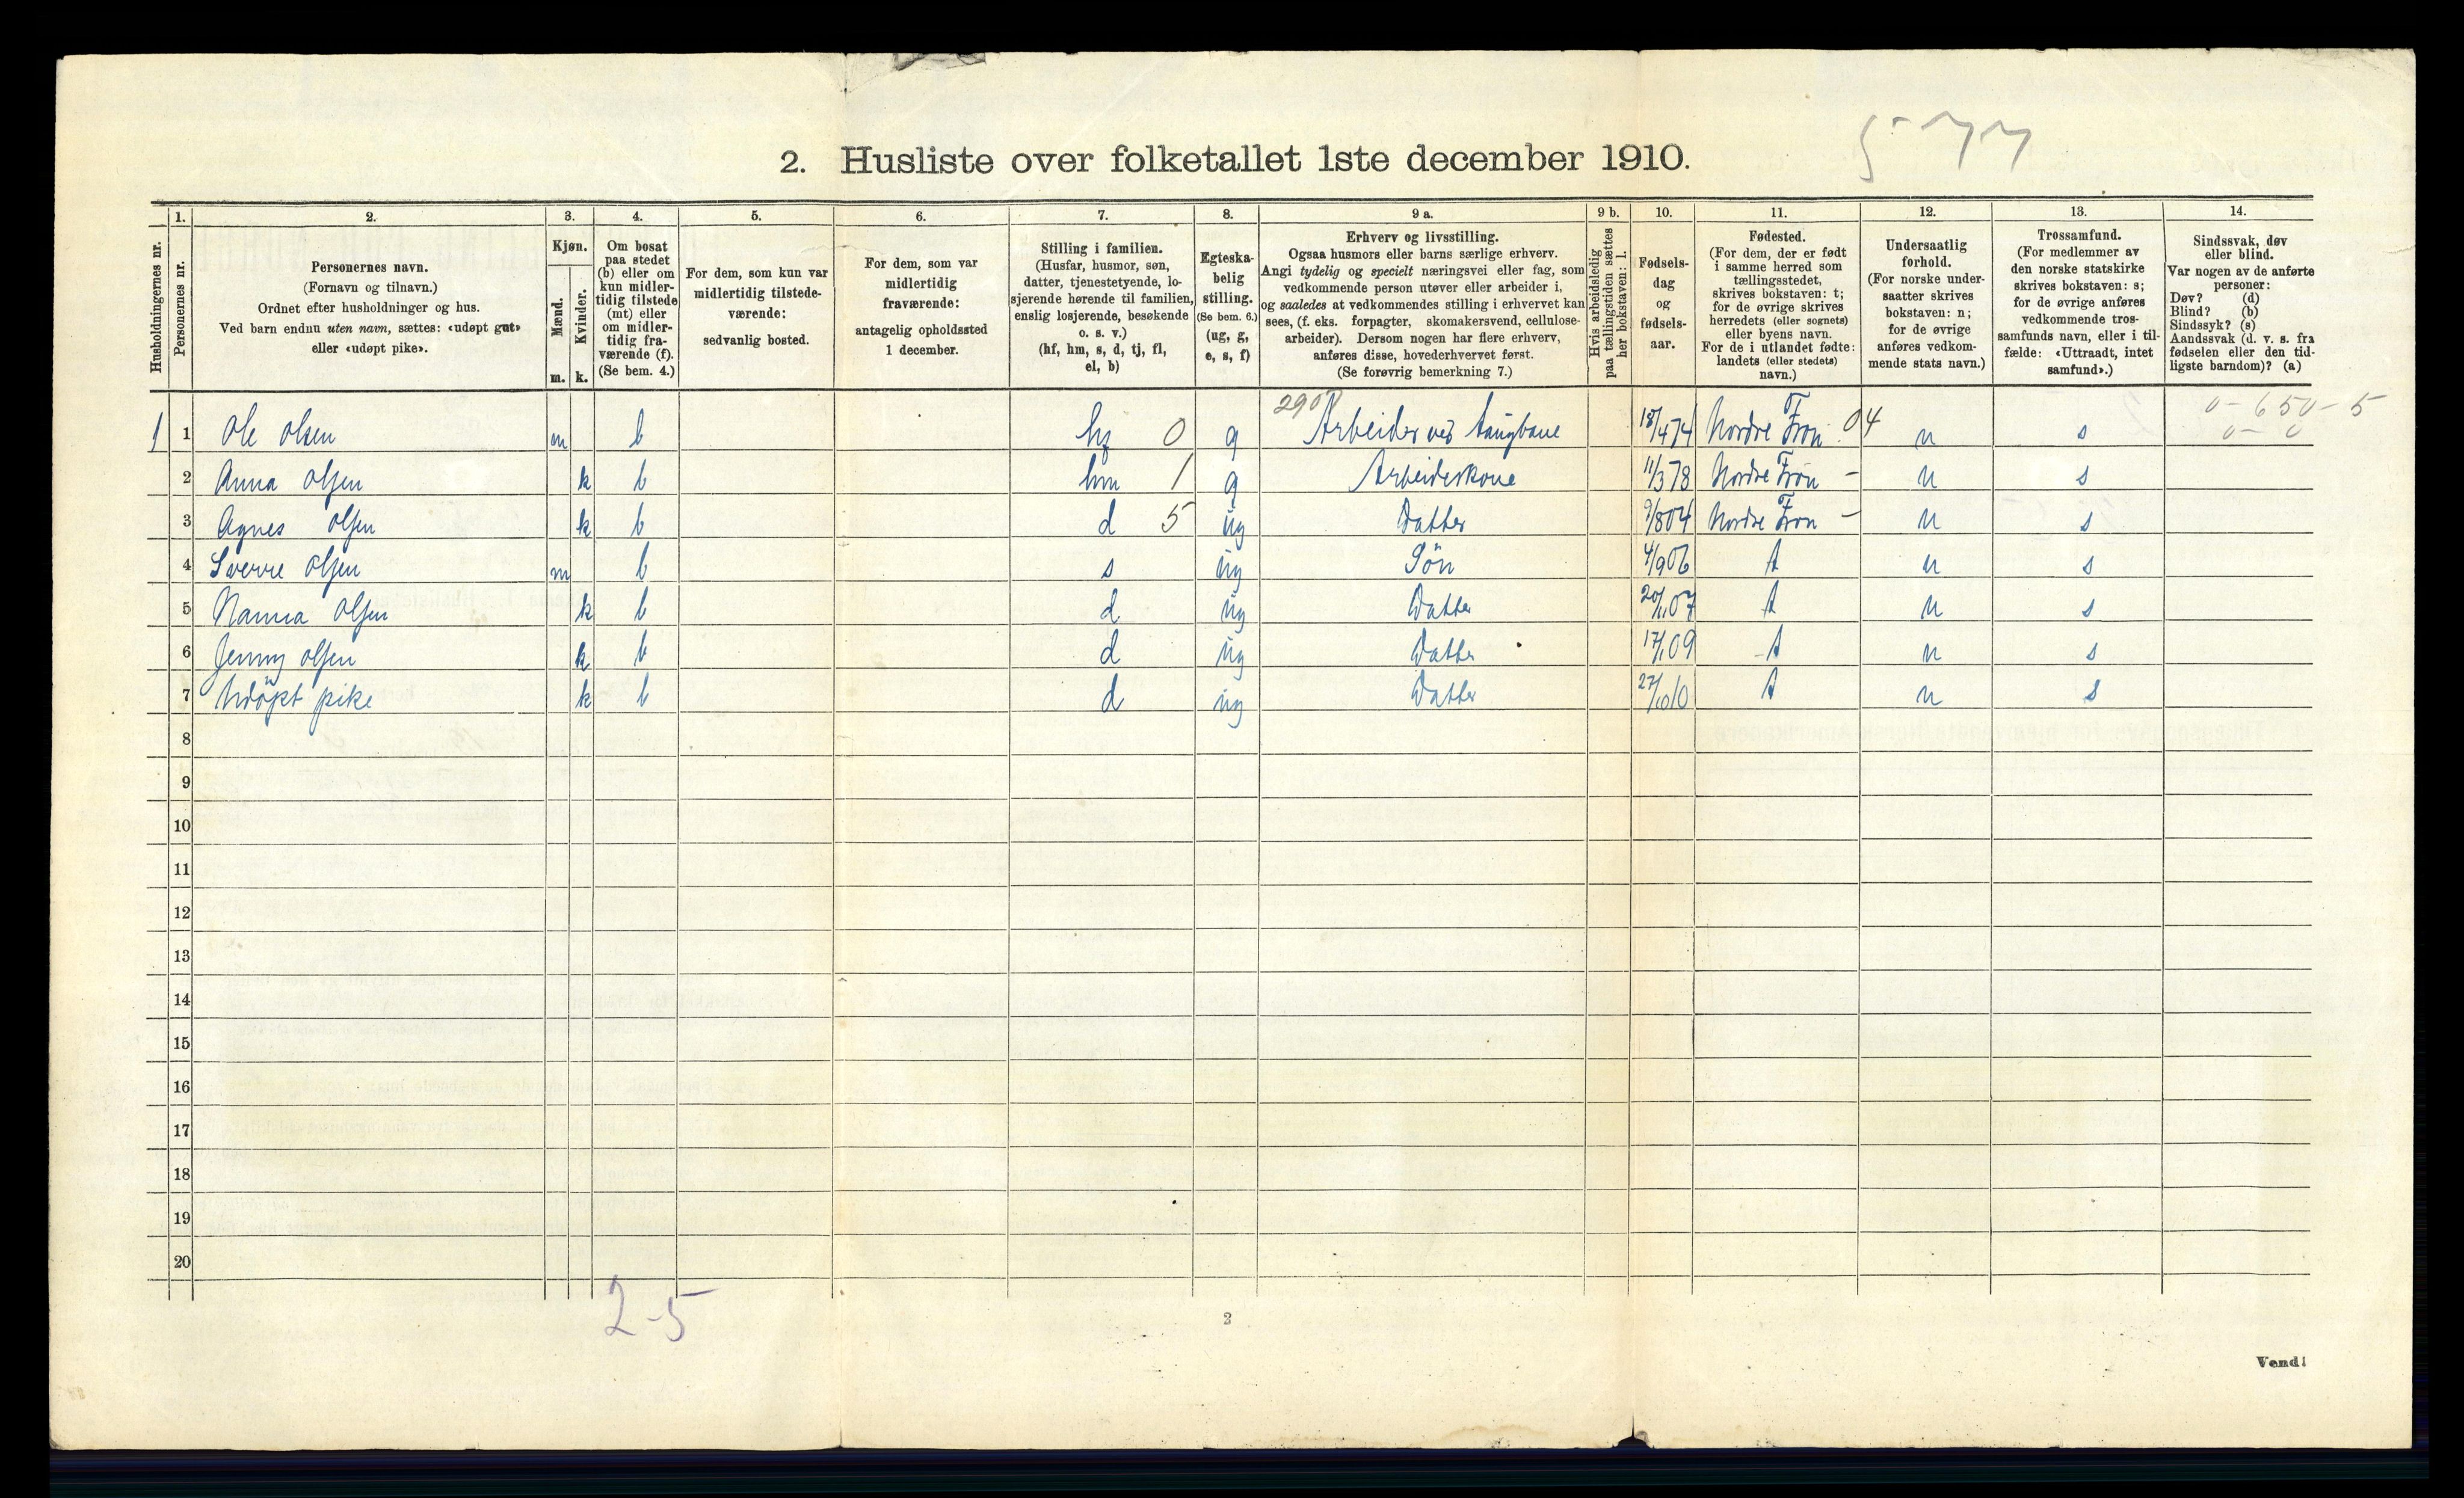 577
2. Husliste over folketallet 1ste december 1910.
Husholdningernes nr.
1.
Personernes nr.
2.
Personernes navn.
(Fornavn og tilnavn.)
Ordnet efter husholdninger og hus.
Ved barn endnu uten navn, sættes: «udøpt gut»
eller «udøpt pike».
3.
Kjøn.
Mænd.
Kvinder.
m. k.
4.
Om bosat
paa stedet
(b) eller om
kun midler-
tidig tilstede
(mt) eller
om midler-
tidig fra-
værende (f).
(Se bem. 4.)
5.
For dem, som kun var
midlertidig tilstede-
værende:
sedvanlig bosted.
6.
For dem, som var
midlertidig
fraværende:
antagelig opholdssted
1 december.
7.
Stilling i familien.
(Husfar, husmor, søn,
datter, tjenestetyende, lo-
sjerende hørende til familien,
enslig losjerende, besøkende
o. s. v.)
(hf, hm, s, d, tj, fl,
el, b)
8.
Egteska-
belig
stilling.
(Se bem. 6.)
(ug, g,
e, s, f)
9 a.
Erhverv og livsstilling.
Ogsaa husmors eller barns særlige erhverv.
Angi tydelig og specielt næringsvei eller fag, som
vedkommende person utøver eller arbeider i,
og saaledes at vedkommendes stilling i erhvervet kan
sees, (f. eks. forpagter, skomakersvend, cellulose-
arbeider). Dersom nogen har flere erhverv,
anføres disse, hovederhvervet først.
(Se forøvrig bemerkning 7.)
9 b.
Hvis arbeidsledig
paa tællingstiden sættes
her bokstaven: l.
10.
Fødsels-
dag
og
fødsels-
aar.
11.
Fødested.
(For dem, der er født
i samme herred som
tællingsstedet,
skrives bokstaven: t;
for de øvrige skrives
herredets (eller sognets)
eller byens navn.
For de i utlandet fødte:
landets (eller stedets)
navn.)
12.
Undersaatlig
forhold.
(For norske under-
saatter skrives
bokstaven: n;
for de øvrige
anføres vedkom-
mende stats navn.)
13.
Trossamfund.
(For medlemmer av
den norske statskirke
skrives bokstaven: s;
for de øvrige anføres
vedkommende tros-
samfunds navn, eller i til-
fælde: «Uttraadt, intet
samfund».)
14.
Sindssvak, døv
eller blind.
Var nogen av de anførte
personer:
Døv? (d)
Blind? (b)
Sindssyk? (s)
Aandssvak (d. v. s. fra
fødselen eller den tid-
ligste barndom)? (a)
0-650-5
0-0
1 1 Ole Olsen m b hf 0 g Arbeider ved taugbane 474 Nordre Fron 04 n s
2 Anna Olsen k b hm 1 g Arbeiderkone 11/3 78 Nordre Fron - n s
3 Agnes Olsen k b d 5 ug Datter 9/8 04 Nordre Fron - n s
4 Sverre Olsen m b s ug Søn 4/9 06 t n s
5 Nanna Olsen k b d ug Datter 07 t n s
6 Jenny Olsen k b d ug Datter 17/1 09 t n s
7 Udöpt pike k b d ug Datter 27/10 10 t n s
8
9
10
11
12
13
14
15
16
17
18
19
20
2-5
2
Vend!